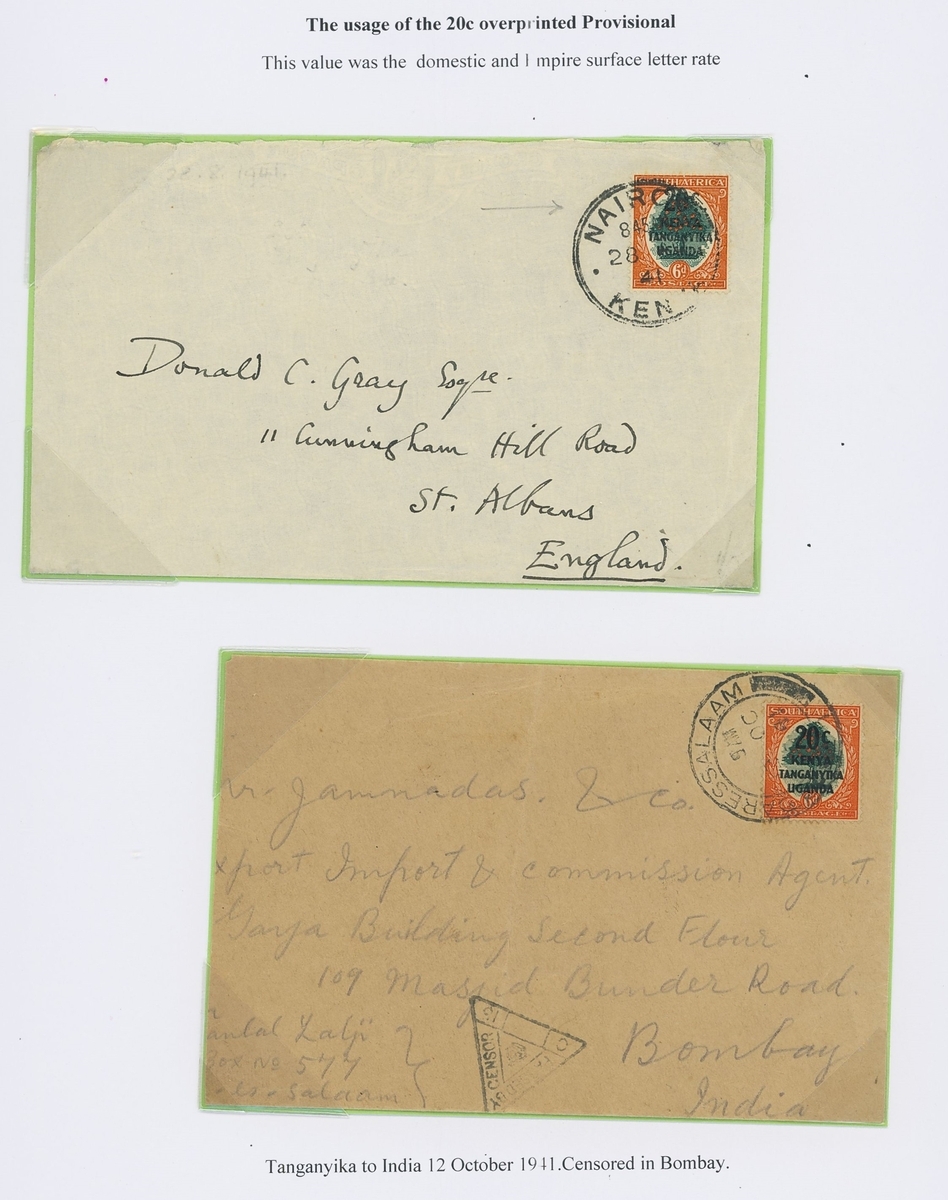 The usage of the 20c overprinted Provisional
This value was the domestic and Empire surface letter rate
28.8.1941.
NAIRO
28
41
KEN
SOUTH AFRICA
20c
KENYA
TANGANYIKA
UGANDA
6d
POSTAGE
Donald C. Gray Esqre.
11 Cunningham Hill Road
St. Albans
England.
RESSALAAM
OC
SOUTH AFRICA
20c
KENYA
TANGANYIKA
UGANDA
6d
POSTAGE
Jamnadas. & co.
xport Import & commission Agent.
Building Second Flour
109 Masjid Bunder Road.
Bombay
India
Lalji
Box No 577
es-Salaam
CENSOR
Tanganyika to India 12 October 1941.Censored in Bombay.